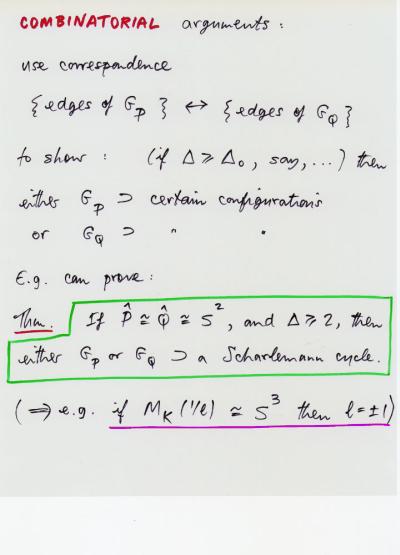 COMBINATORIAL arguments :
use correspondence
{edges of G_P} ↔ {edges of G_Q}
to show : (if Δ ⩾ Δ₀, say, ...) then
either G_P ⊃ certain configurations
or G_Q ⊃ " " .
E.g. can prove :
Thm. If P̂ ≅ Q̂ ≅ S², and Δ ⩾ 2, then
either G_P or G_Q ⊃ a Scharlemann cycle.
(⇒ e.g. if M_K(1/l) ≅ S³ then l = ±1)